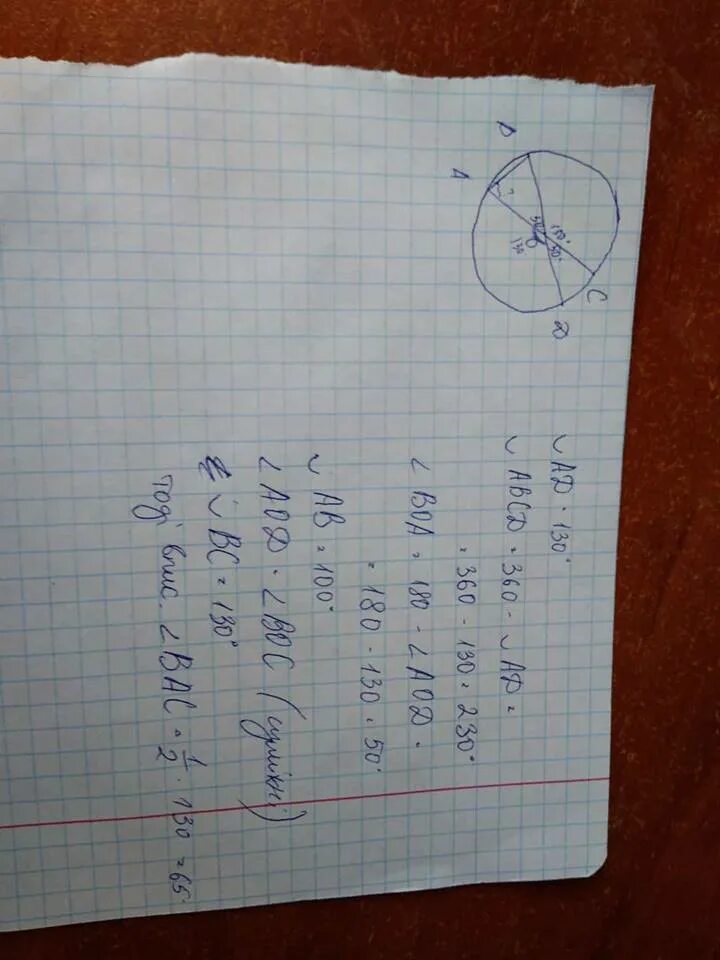 B
A
C
D
O
?
50
130°
50°
130
◡ AD = 130°
◡ ABCD = 360 - ◡ AD =
= 360 - 130 = 230°
∠ BOA = 180 - ∠ AOD =
= 180 - 130 = 50°
◡ AB = 100°
∠ AOD = ∠ BOC (суміжні)
◡ BC = 130°
тоді впис. ∠ BAC = 1/2 · 130 = 65°